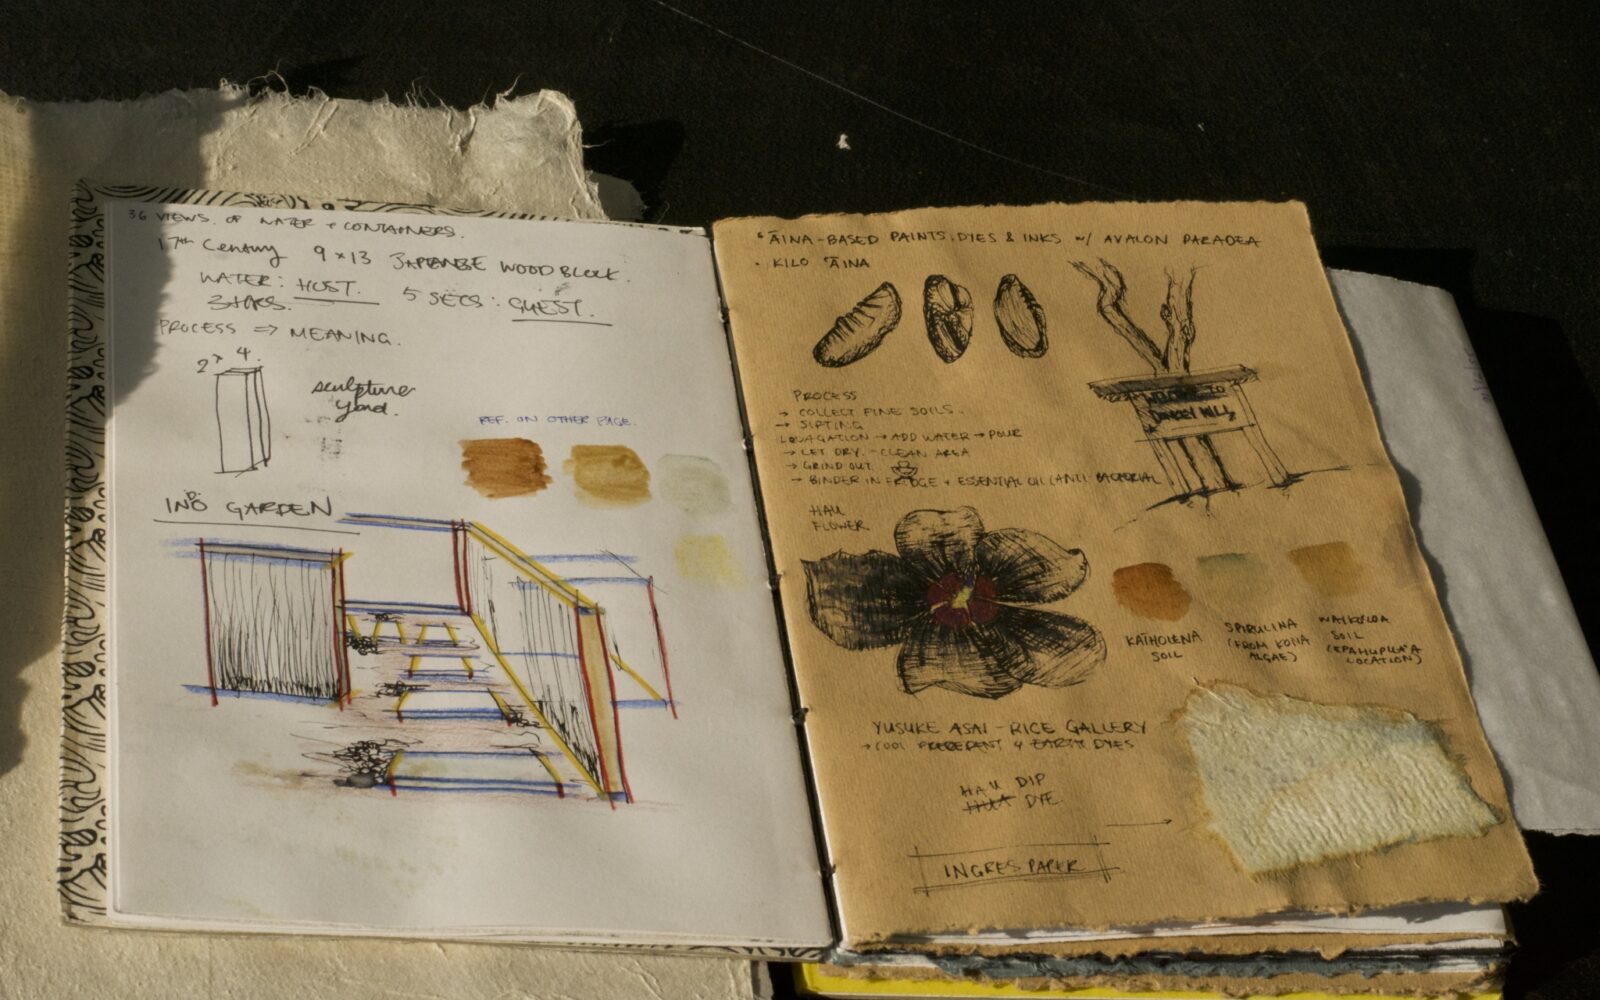 36 VIEWS. OF WATER + CONTAINERS.
17th Century 9 x 13 JAPANESE WOODBLOCK.
WATER: HOST. 5 SECS: GUEST.
PROCESS => MEANING.
2 x 4.
sculpture
yard.
REF. ON OTHER PAGE.
GARDEN
'ĀINA-BASED PAINTS, DYES & INKS w/ AVALON PARADEA
• KILO 'ĀINA
WELCOME TO
DONKEY MILL
PROCESS
→ COLLECT FINE SOILS.
→ SIFTING
→ ADD WATER → POUR
→ LET DRY. - CLEAN AREA
→ GRIND OUT
→ BINDER IN FRIDGE + ESSENTIAL OIL (ANTI BACTERIAL
HAU
FLOWER
KAIHOLENA
SOIL
SPIRULINA
(FROM KONA
ALGAE)
WAIKOLOA
SOIL
LOCATION)
YUSUKE ASAI - RICE GALLERY
→ COOL PRECEDENT 4 EARTH DYES
HAU DIP
DYE.
INGRES PAPER